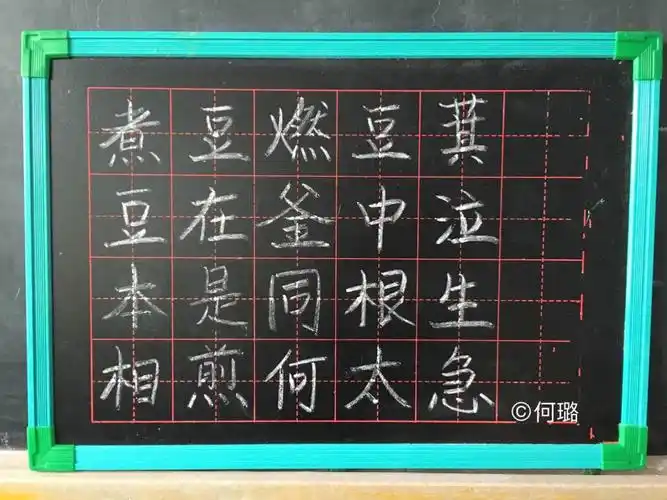 煮豆燃豆萁
豆在釜中泣
本是同根生
相煎何太急
©何璐